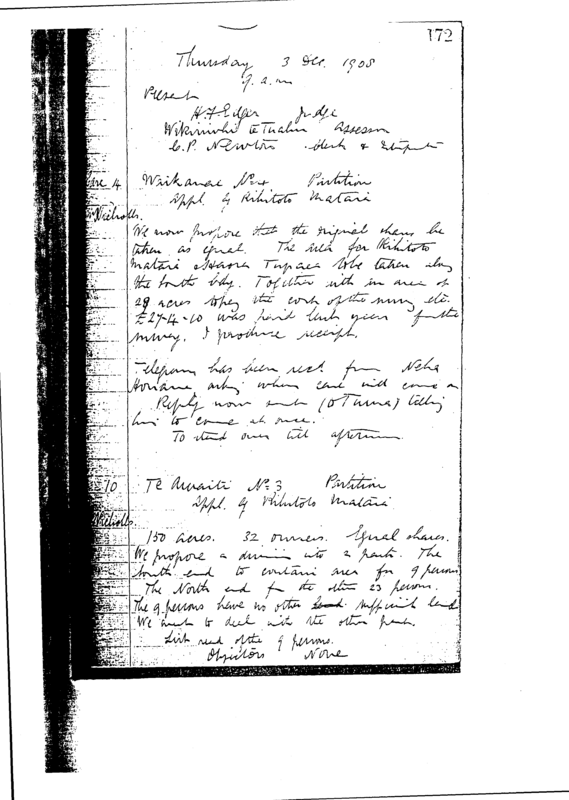 172
Thursday 3 Dec. 1908
9. a.m
Present
H.F. Edger Judge
Wikiriwhi te Tuahu Assessor
C.P. Newton Clerk &
4 Waikanae No 4 Partition
Appl. of Rihitoto Mataia
Nicholls.
We now propose that the original shares be
taken as equal. The area for Rihitoto
Mataia Tupaea to be taken along
the South bdy. Together with an area of
28 acres to pay the cost of the survey, etc.
£27-4-10 was paid last year for the
survey. I produce receipt.
Telegram has been recd from Neha
Horiana asking when case will come on
Reply now sent telling
him to come at once.
To stand over till afternoon.
10 Te Awaiti No 3 Partition
Appl. of Rihitoto Mataia
Nicholls.
150 acres. 32 owners. Equal shares.
We propose a division into 2 parts. The
South end to contain area for 9 persons
The North end for the other 23 persons.
The 9 persons have no other land sufficient land
We want to deal with the other part.
List read of the 9 persons.
Objectors None